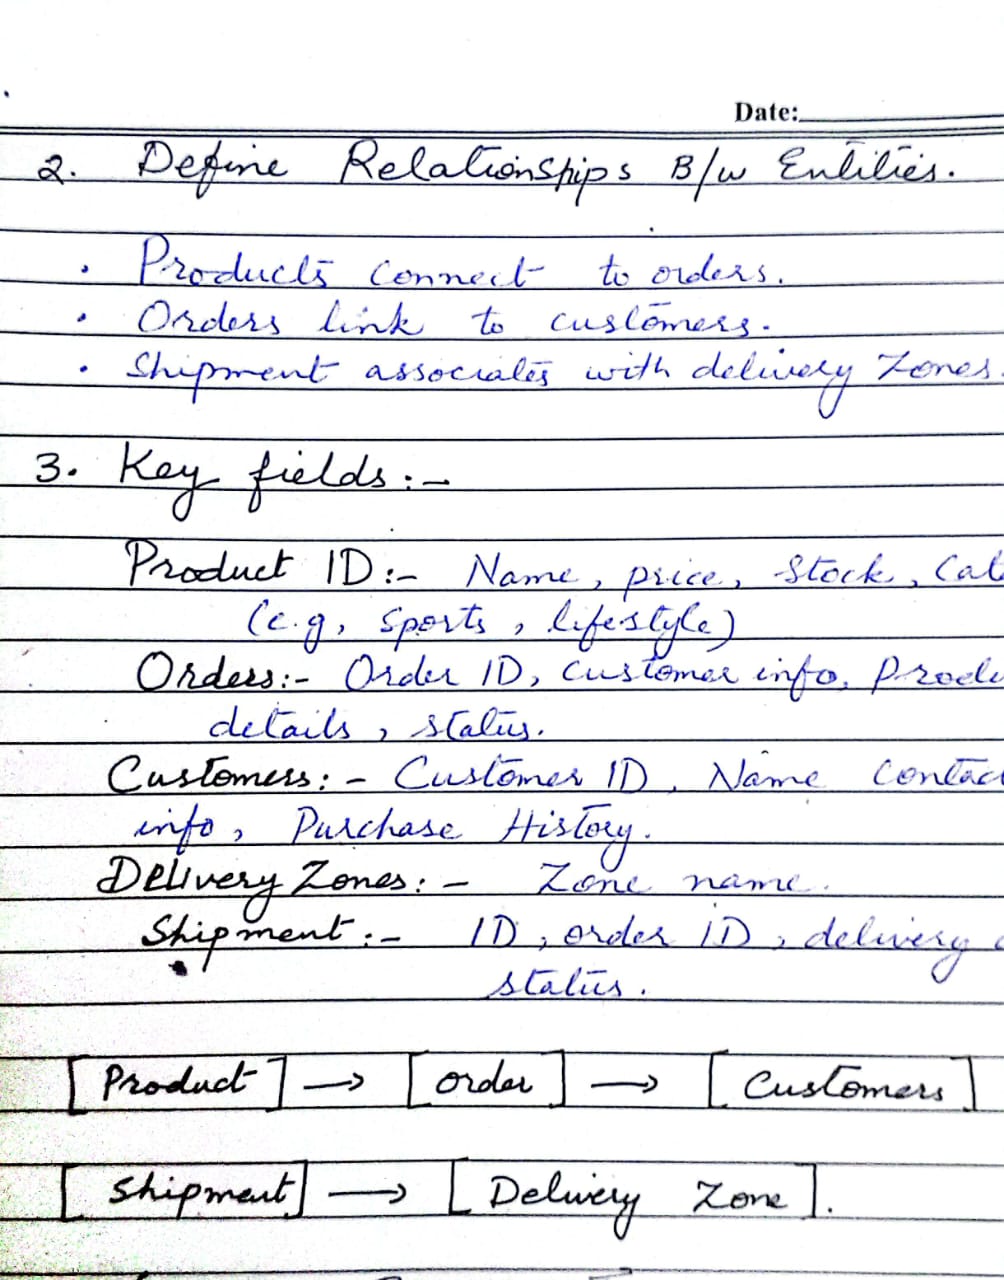 Date:
2. Define Relationships B/w Entities.
• Products connect to orders.
• Orders link to customers.
• Shipment associates with delivery Zones.
3. Key fields:-
Product ID:- Name, price, Stock, Cat
(e.g, sports, lifestyle)
Orders:- Order ID, customer info, Produ
details, status.
Customers:- Customer ID, Name Contac
info, Purchase History.
Delivery Zones:- Zone name.
Shipment:- ID, order ID, delivery
status.
[Product] → [order] → [Customers]
[Shipment] → [Delivery Zone].